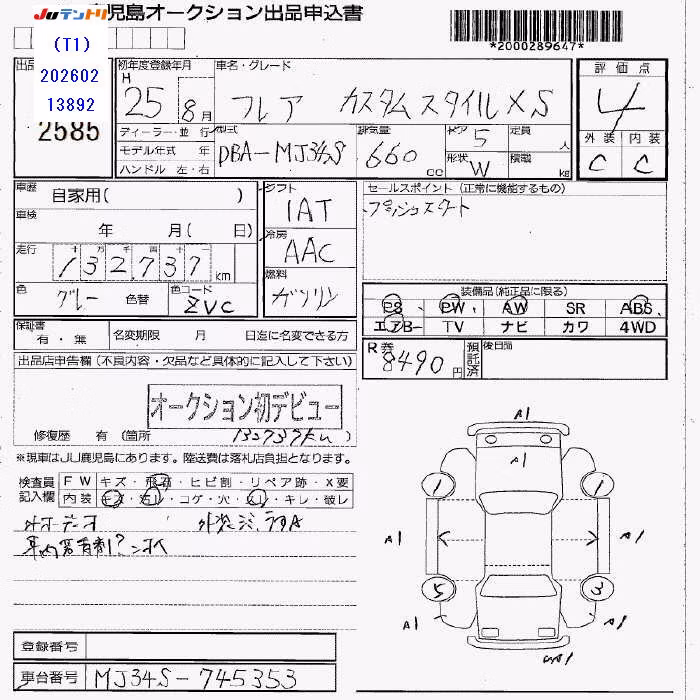 JUテントリ 児島オークション出品申込書
(T1)
202602
13892
2585
*2000289647*
出品
初年度登録年月
H 25 8月
車名・グレード
フレア カスタムスタイルXS
評価点
4
外装 内装
C C
ディーラー・並 行
モデル年式 年
ハンドル 左・右
型式
DBA-MJ34S
排気量
660 cc
ドア 5
形状 W
定員 人
積載 kg
車歴
自家用( )
車検
年 月( 日)
走行
十 万 千 百 十
132,737 km
色
グレー 色替
色コード
ZVC
シフト
IAT
冷房
AAC
燃料
ガソリン
セールスポイント(正常に機能するもの)
プッシュスタート
装備品(純正品に限る)
PS PW AW SR ABS
エアB- TV ナビ カワ 4WD
保証書
有・無
名変期限 月 日迄に名変できる方
R券
8490円
預託済
後日品
出品店申告欄(不良内容・欠品など具体的に記入して下さい)
オークション初デビュー
修復歴 有(箇所 132737km)
※現車はJU鹿児島にあります。陸送費は落札店負担となります。
検査員記入欄
FW キズ・飛石・ヒビ割・リペア跡・X要
内装 キズ・汚レ・コゲ・穴・スレ・キレ・破レ
A1
A1
1 1
A1 A1
5 3
A1 A1
A1
登録番号
車台番号 MJ34S-745353